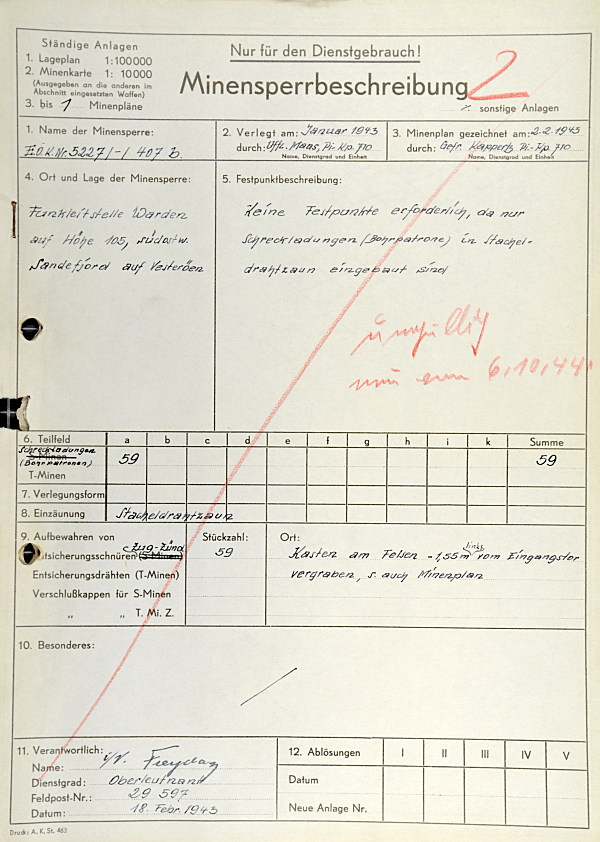 Ständige Anlagen
1. Lageplan 1:100000
2. Minenkarte 1: 10000
(Ausgegeben an die anderen im
Abschnitt eingesetzten Waffen)
3. bis 1 Minenpläne
Nur für den Dienstgebrauch!
Minensperrbeschreibung 2
sonstige Anlagen
1. Name der Minensperre:
5227/-/ 407 b.
2. Verlegt am: Januar 1943
durch: Uffz. Maas, Pi. Kp. 710
Name, Dienstgrad und Einheit
3. Minenplan gezeichnet am: 2.2.1943
durch: Gefr. Kappertz, Pi.-Kp. 710
Name, Dienstgrad und Einheit
4. Ort und Lage der Minensperre:
Funkleitstelle Warden
auf Höhe 105, südostw.
Sandefjord auf Vesteröen
5. Festpunktbeschreibung:
Keine Festpunkte erforderlich, da nur
Schreckladungen (Bohrpatrone) in Stachel-
drahtzaun eingebaut sind
ungültig
6.10.44.
6. Teilfeld a b c d e f g h i k Summe
Schreckladungen
S-Minen 59 59
(Bohrpatronen)
T-Minen
7. Verlegungsform
8. Einzäunung Stacheldrahtzaun
9. Aufbewahren von Stückzahl: Ort:
Zug-Zünd
tsicherungsschnüren (S-Minen) 59
Kasten am Felsen - 1,55m links vom Eingangstor
vergraben, s. auch Minenplan
Entsicherungsdrähten (T-Minen)
Verschlußkappen für S-Minen
" " T. Mi. Z.
10. Besonderes:
11. Verantwortlich:
Name: i/V. Freydag
Dienstgrad: Oberleutnant
Feldpost-Nr.: 29 597
Datum: 18. Febr. 1943
12. Ablösungen I II III IV V
Datum
Neue Anlage Nr.
Druck: A. K. St. 463